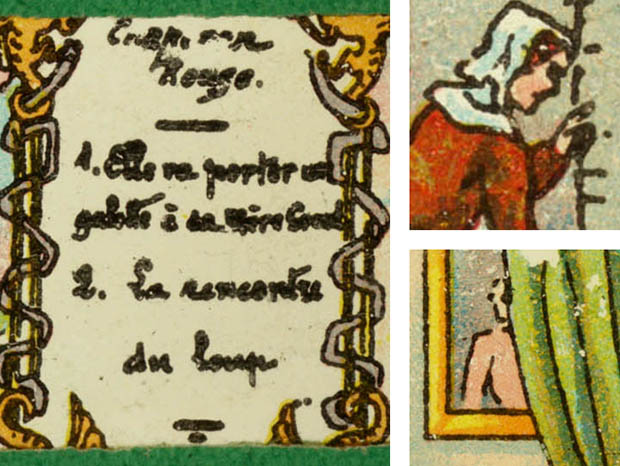 Chaperon
Rouge.
1. Elle va porter un
galette à sa Mère Grand
2. La rencontre
du Loup